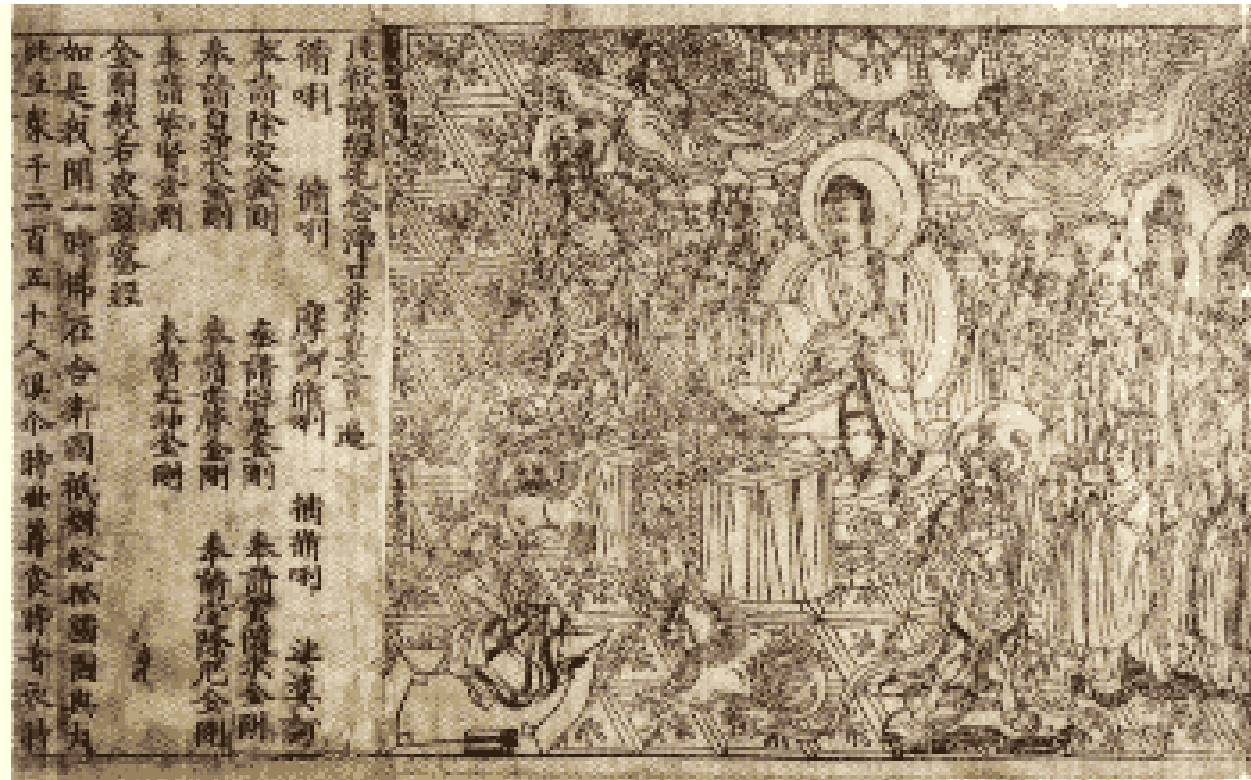 欲讀經先念淨口業真言一遍
脩唎 脩唎 摩訶脩唎 脩脩唎 娑婆訶
奉請除災金剛 奉請辟毒金剛 奉請黃隨求金剛
奉請白淨水金剛 奉請赤聲金剛 奉請定除厄金剛
奉請紫賢金剛 奉請大神金剛
金剛般若波羅蜜經
如是我聞一時佛在舍衛國祇樹給孤獨園與大
比丘衆千二百五十人俱尒時世尊食時著衣持